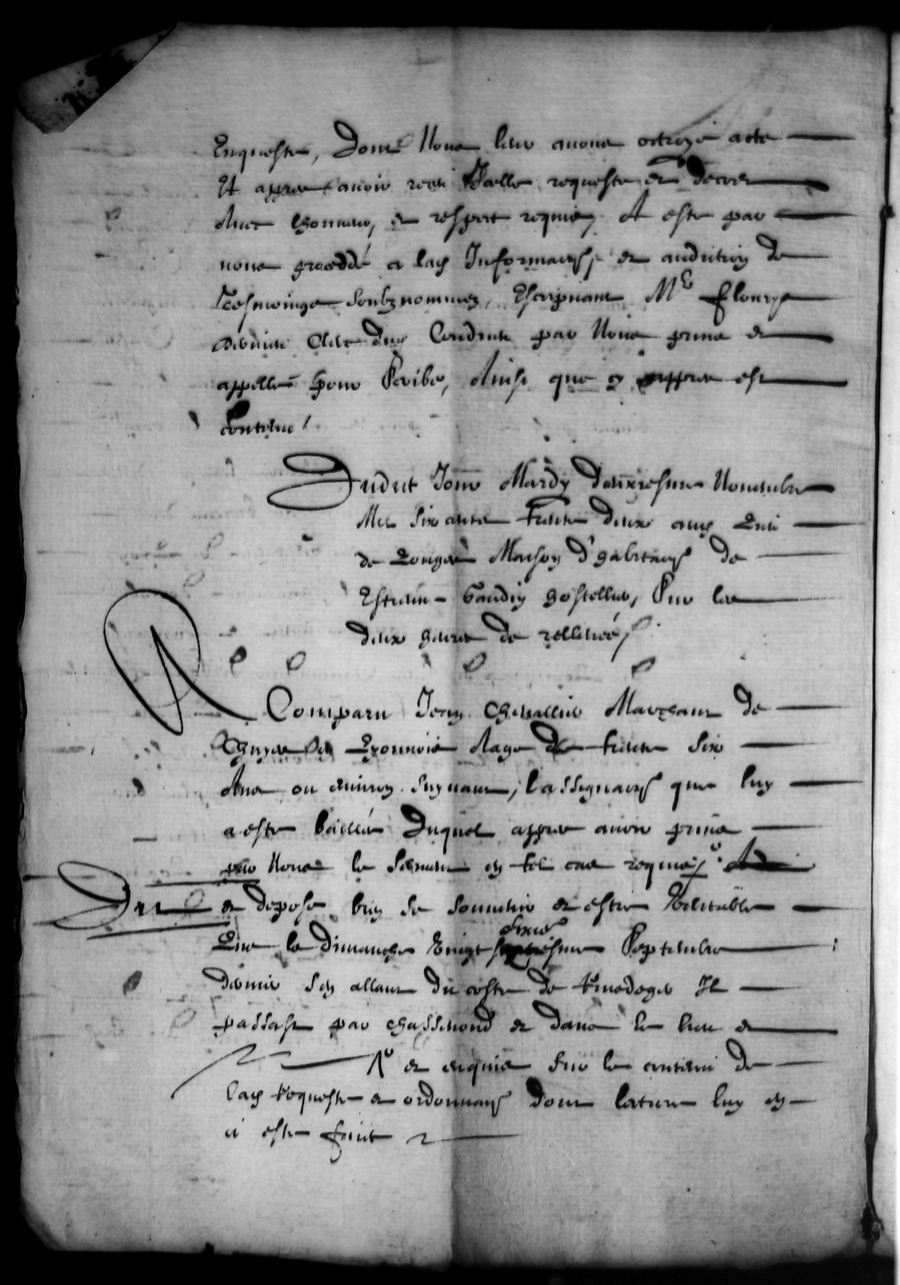 Enqueste, Dont Nous leur avons octroyé acte
Et appres avoir receu Icelle requeste et decret
Avec honneur, et respect requis, A esté par
nous proceddé a lad Information et audition de
Tesmoings soubznommez, Escripvant Me Fleury
clerc dud par Nous prins et
appellé pour scribe, Ainsi que cy appres est
contenu /
Dudict Jour Mardy deuxiesme Novembre
Mil six cents trente deux aud lieu
de Maison d'habitation de
Gaudin hostellier, sur les
deux heures de rellevée
A Comparu Jean Chevallier Marchant de
Lyonnois Aagé de trente six
Ans ou environ suyvant, l'assignation que luy
a esté baillée Duquel appres avoir prins
par Nous le serment en tel cas requis
Dit et depose bien se souvenir et estre veritable
Que le dimanche vingt sixie esme Septembre
dernier s'en allant du costé de Il
passast par et dans le lieu et
et enquis sur le contenu de
lad requeste et ordonnance dont lecture luy en
a esté faict